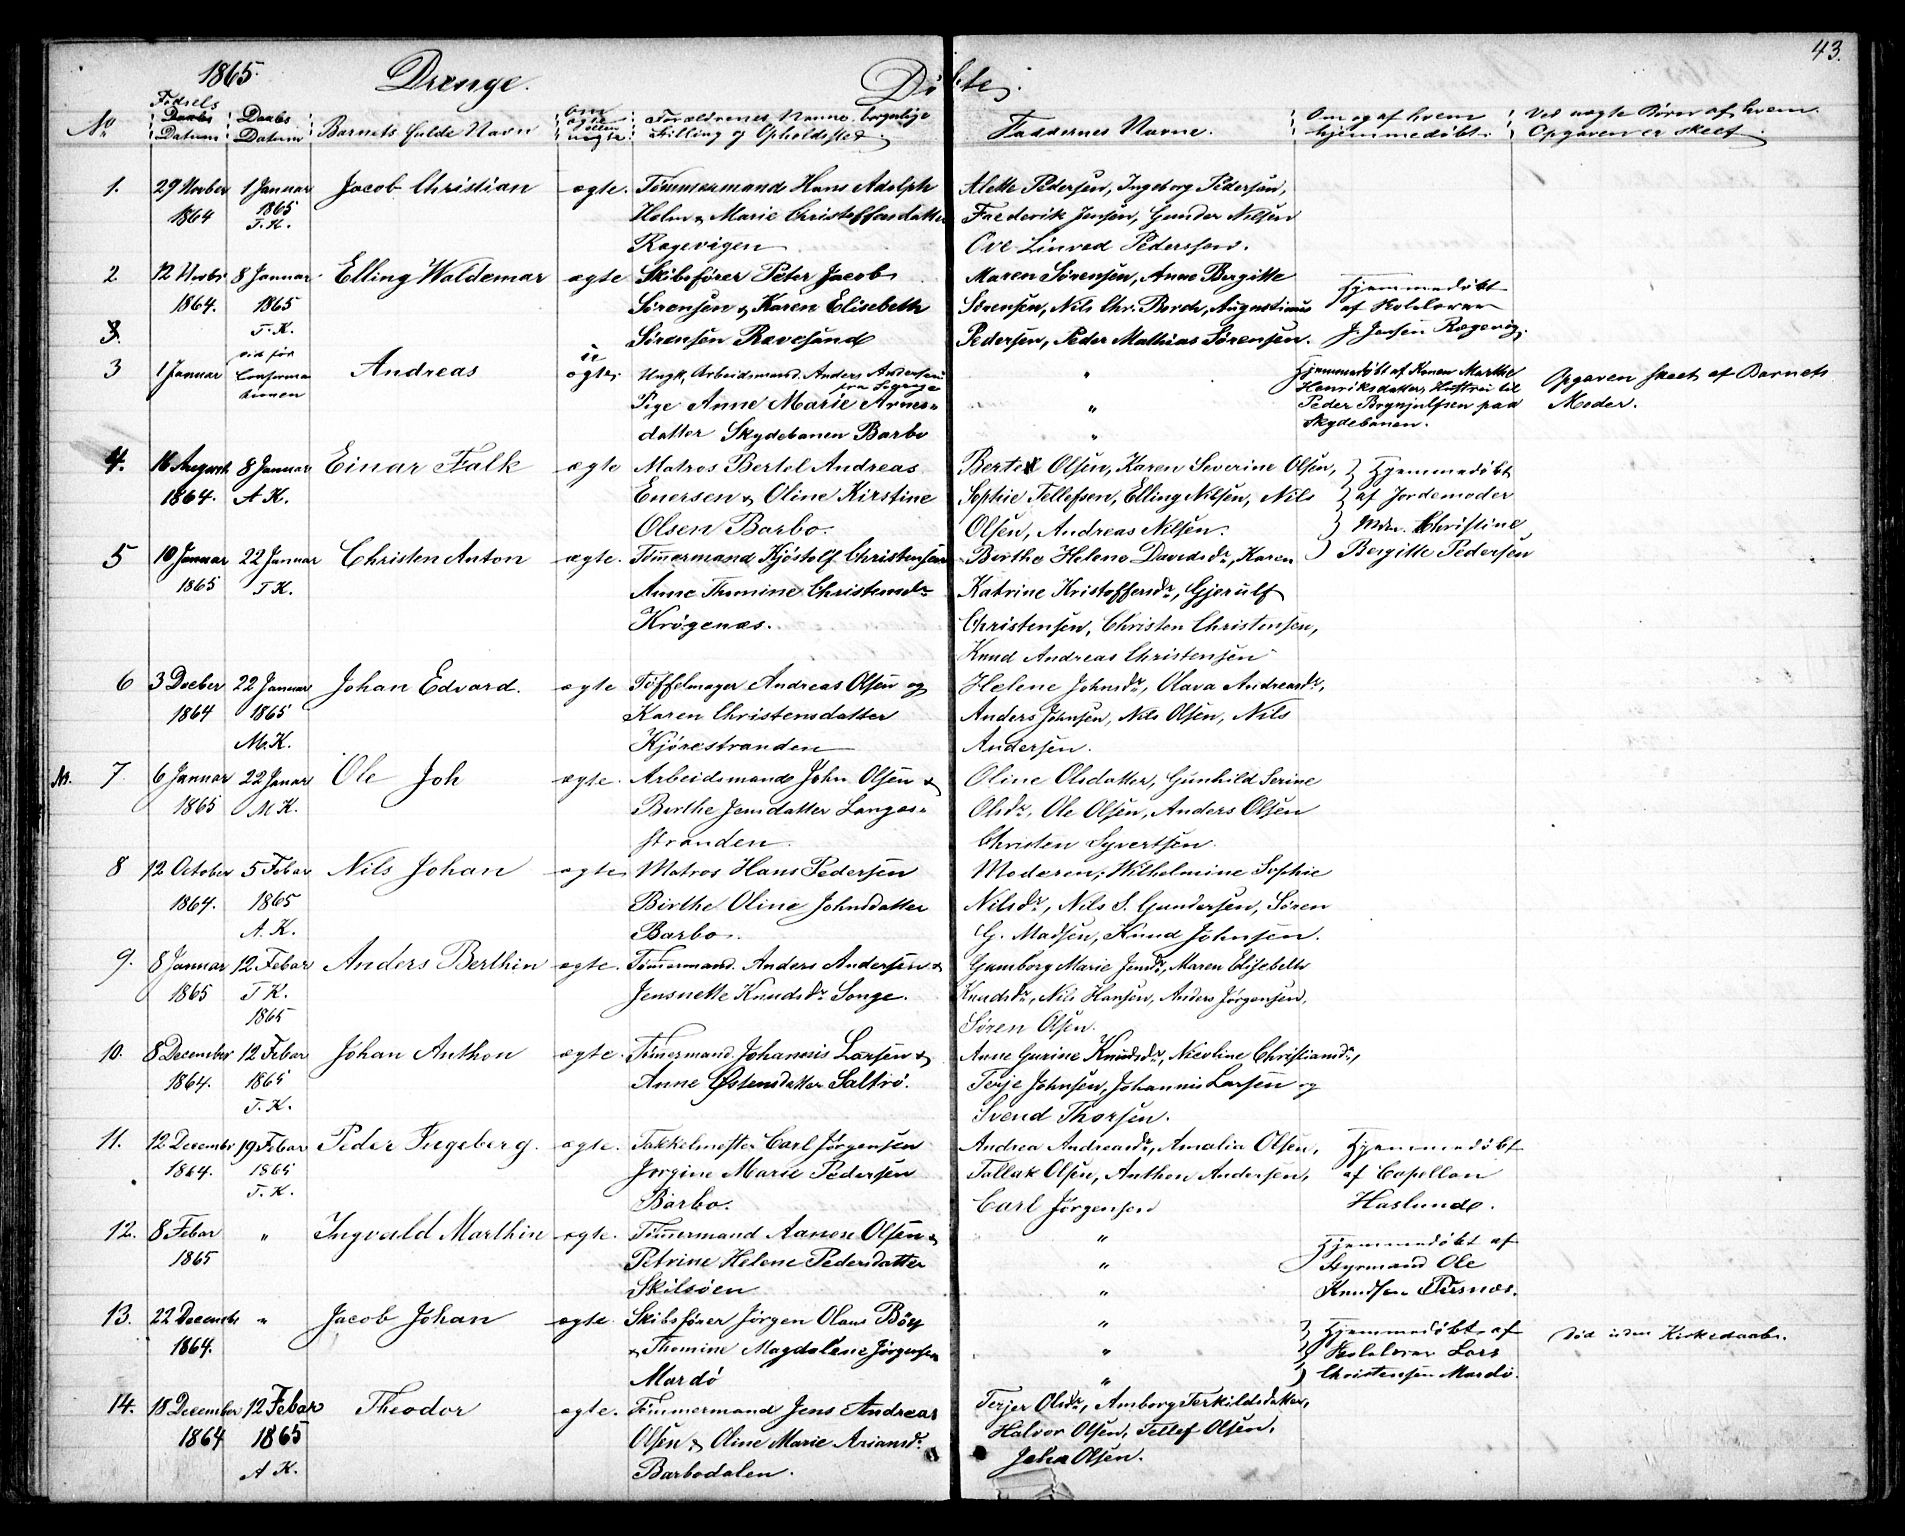 43.
1865. Drenge. Döbte.
No Fødsels Daabs Datum Daabs Datum Barnets fulde Navn Om ægte eller uægte Forældrenes Navne, borgelige Stilling og Opholdssted. Faddernes Navne. Om og af hvem hjemmedøbt. Ved uægte Børn af hvem Opgaven er skeet.
1. 29 Novber 1 Januar Jacob Christian ægte. Tømmermand Hans Adolph Alette Pedersen, Ingeborg Pedersen,
1864 1865 Holm & Marie Christoffersdatter Frederik Jensen, Gunder Nilsen
T.K. Ragevigen Ove Pedersen.
2 12 Novbr 8 Januar Elling Waldemar ægte Skibsfører Peter Jacob Maren Sørensen, Anne Bergitte Hjemmedøbt
1864. 1865 Sørensen & Karen Elisebeth Sørensen, Nils Chr. Augustinus af Kolelærer
3. T.K. Sørensen Revesund Pedersen, Peder Mathias Sørensen. J. Jensen Rægevig.
3 1 Januar vid før Confirmationen Andreas uægte Ungk. Arbeidsmand Anders Andersen " Hjemmedøbt af Konen Marthe Opgaven skeet af Barnets
fra Pige Anne Marie Arnes- " Henriksdatter, Hustru til Peder Brynjulfsen paa Moder.
datter Skydebanen Barbo " Skydebanen.
4. 16 August 8 Januar Einar Falk ægte Matros Bertel Andreas Bertel Olsen, Karen Severine Olsen, Hjemmedøbt
1864. A K. Enersen & Oline Kirstine Sophie Tellefsen, Elling Nilsen, Nils af Jordemoder
Olsen Barbo. Olsen, Andreas Nilsen. Mdm. Christine
5 10 Januar 22 Januar Christen Anton ægte. Tømmermand Kjöstolf Christensen Birthe Helene Davidsdr, Karen Bergitte Pedersen
1865 T K. Anne Thomine Christensdr Katrine Kristoffersdr, Gjerulf
Krögenæs. Christensen, Christen Christensen,
Knud Andreas Christensen
6 3 Decber 22 Januar Johan Edvard. ægte Töffelmager Andreas Olsen og Helene Johnsdr, Olava Andreasdr,
1864 1865 Karen Christensdatter Anders Johnsen, Nils Olsen, Nils
M.K. Kjörestranden Andersen.
No. 7. 6 Januar 22 Janar Ole Joh ægte. Arbeidsmand John Olsen & Oline Olsdatter, Gunhild Serine
1865 M K. Birthe Jensdatter Langes- Olsdr, Ole Olsen, Anders Olsen
stranden. Christen Syvertsen.
8 12 October 5 Febar Nils Johan ægte Matros Hans Pedersen Moderen; Wilhelmine Sophie
1864. 1865 Birthe Oline Johnsdatter Nilsdr, Nils S. Gundersen, Søren
A. K. Barbo. G. Madsen, Knud Johnsen.
9. 8 Januar 12 Febar Anders Berthin ægte. Tømmermand Anders Andersen & Gumborg Marie Jensdr, Maren Elisebeth
1865 T K. Jensnette Knudsdr Songe. Knudsdr, Nils Hansen, Anders Jørgensen,
1865 Søren Olsen.
10. 8 December 12 Febar Johan Anthon ægte. Tømmermand Johannis Larsen & Anne Gurine Knudsdr, Nicoline Christiansdr,
1864. 1865 Anne Østensdatter Saltrö. Terje Johnsen, Johannis Larsen og
T. K. Svend Thorsen.
11. 12 Decembr 19 Febar Peder Ingeberg. ægte. Takkelmester Carl Jørgensen Andrea Andreasdr, Amalia Olsen, Hjemmedøbt
1864. 1865 Jørgine Marie Pedersen Tallak Olsen, Anthon Andersen, af Capellan
T. K. Barbo. Carl Jørgensen Haslunde.
12. 8 Febar " Ingvald Marthin ægte. Tømmermand Aanon Olsen & " Hjemmedøbt af
1865 Petrine Helene Pedersdatter " Styrmand Ole
Skilsöen " Knudsen
13. 22 Decembr " Jacob Johan ægte. Skibsfører Jörgen Olaus Böy " Hjemmedøbt af Död uden Kirkedaab.
1864. & Thomine Magdalene Jörgensen " Skolelærer Lars
Mardö " Christensen Mardö.
14. 18 December 12 Febar Theodor ægte. Tømmermand Jens Andreas Terjer Olsdr, Amborg Terkildsdatter,
1864 1865 Olsen & Oline Marie Ariansdr. Halvor Olsen, Tellef Olsen,
A K. Barbodalen. John Olsen.